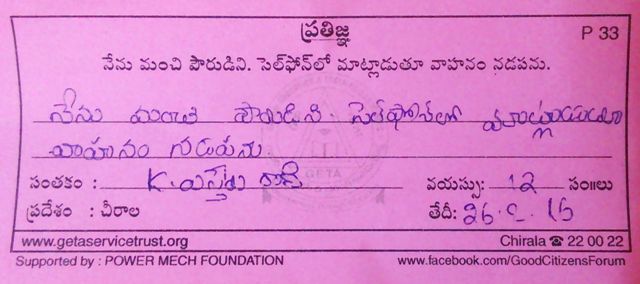 ప్రతిజ్ఞ P 33
నేను మంచి పౌరుడిని. సెల్‌ఫోన్‌లో మాట్లాడుతూ వాహనం నడపను.
నేను మంచి పౌరుడిని. సెల్‌ఫోన్‌లో మాట్లాడుతూ
వాహనం నడపను
సంతకం : K. వయస్సు: 12 సం॥లు
ప్రదేశం : చీరాల తేదీ: 26
GETA
www.getaservicetrust.org Chirala ☎ 22 00 22
Supported by : POWER MECH FOUNDATION www.facebook.com/GoodCitizensForum